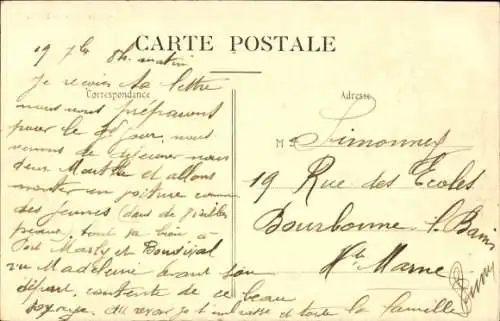 CARTE POSTALE
Correspondance
Adresse
19 7bre 8h. matin
Je reçois ta lettre
nous nous préparons
pour le jour, nous
venons de déjeuner nous
deux Marthe et allons
monter en voiture comme
des jeunes (dans de
tout va bien à
Port Marly et Bougival
vu Madeleine avant son
départ, contente de ce beau
voyage. Au revoir je t'embrasse et toute la famille
M Simonney
19 Rue des Ecoles
Bourbonne l. Bains
Hte Marne